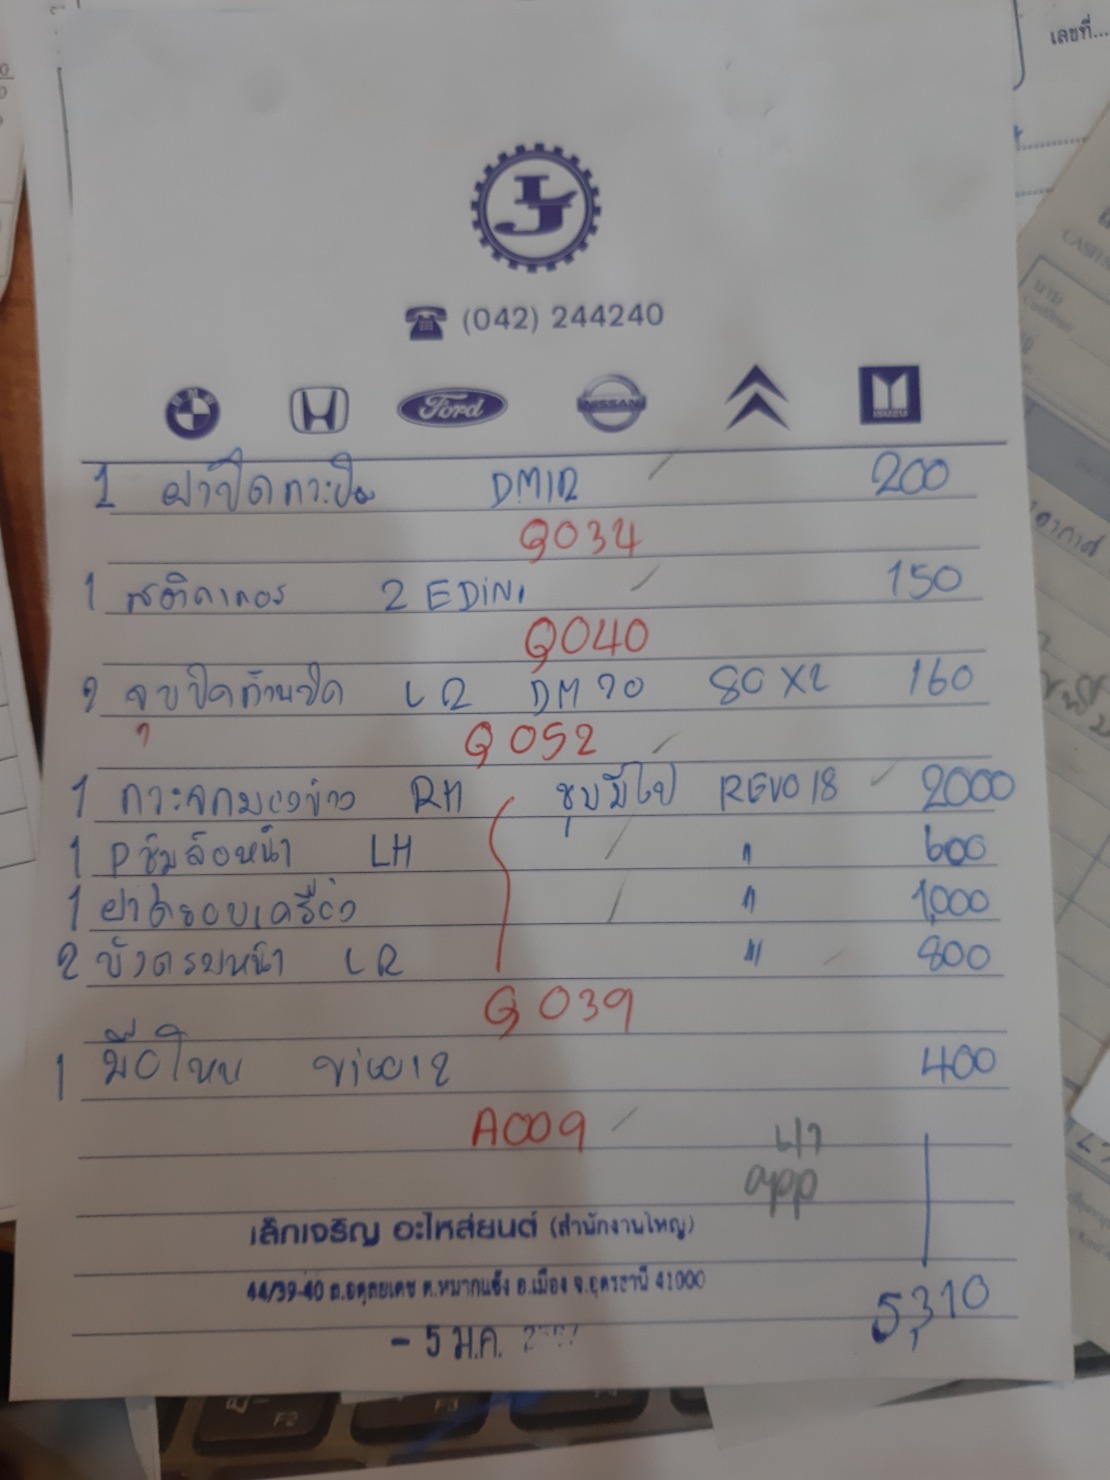 เลขที่...
LJ
(042) 244240
BMW H Ford NISSAN ISUZU
1 ฝาปิดกะบะ DM12 200
Q034
1 สติกเกอร์ 2 EDiNi 150
Q040
2 จุบปิดท้ายปิด LR DM 70 80 X2 160
Q 052
1 กระจกมองข้าง RH ชุบมีไฟ REVO 18 2000
1 Pซุ้มล้อหน้า LH " 600
1 ฝาครอบเครื่อง " 1,000
2 บังตรมหน้า LR " 800
Q 039
1 มือโหน 400
A009
app
เล็กเจริญ อะไหล่ยนต์ (สำนักงานใหญ่)
44/39-40 ถ.อดุลยเดช ต.หมากแข้ง อ.เมือง จ.อุดรธานี 41000
5,310
- 5 ม.ค.
F2 F3